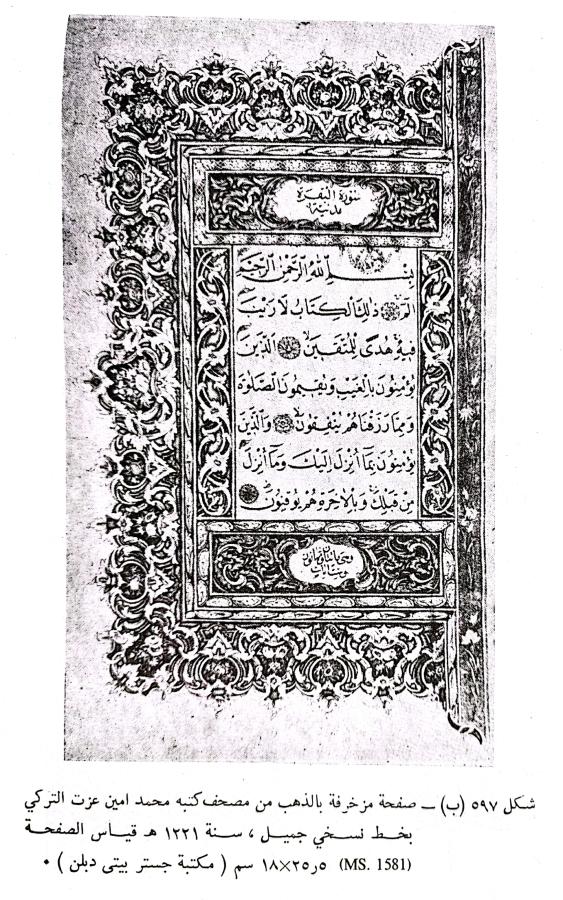 سورة البقرة
مدنية
بِسْمِ اللهِ الرَّحْمٰنِ الرَّحِيمِ
الٓمٓ ذٰلِكَ الْكِتَابُ لَا رَيْبَ
فِيهِ هُدًى لِلْمُتَّقِينَ الَّذِينَ
يُؤْمِنُونَ بِالْغَيْبِ وَيُقِيمُونَ الصَّلٰوةَ
وَمِمَّا رَزَقْنَاهُمْ يُنْفِقُونَ وَالَّذِينَ
يُؤْمِنُونَ بِمَا أُنْزِلَ إِلَيْكَ وَمَا أُنْزِلَ
مِنْ قَبْلِكَ وَبِالْاٰخِرَةِ هُمْ يُوقِنُونَ
شكل ٥٩٧ (ب) – صفحة مزخرفة بالذهب من مصحف كتبه محمد امين عزت التركي
بخط نسخي جميل ، سنة ١٢٢١ هـ قياس الصفحة
١٨×٢٥٫٥ سم ( مكتبة جستر بيتى دبلن ) • (MS. 1581)